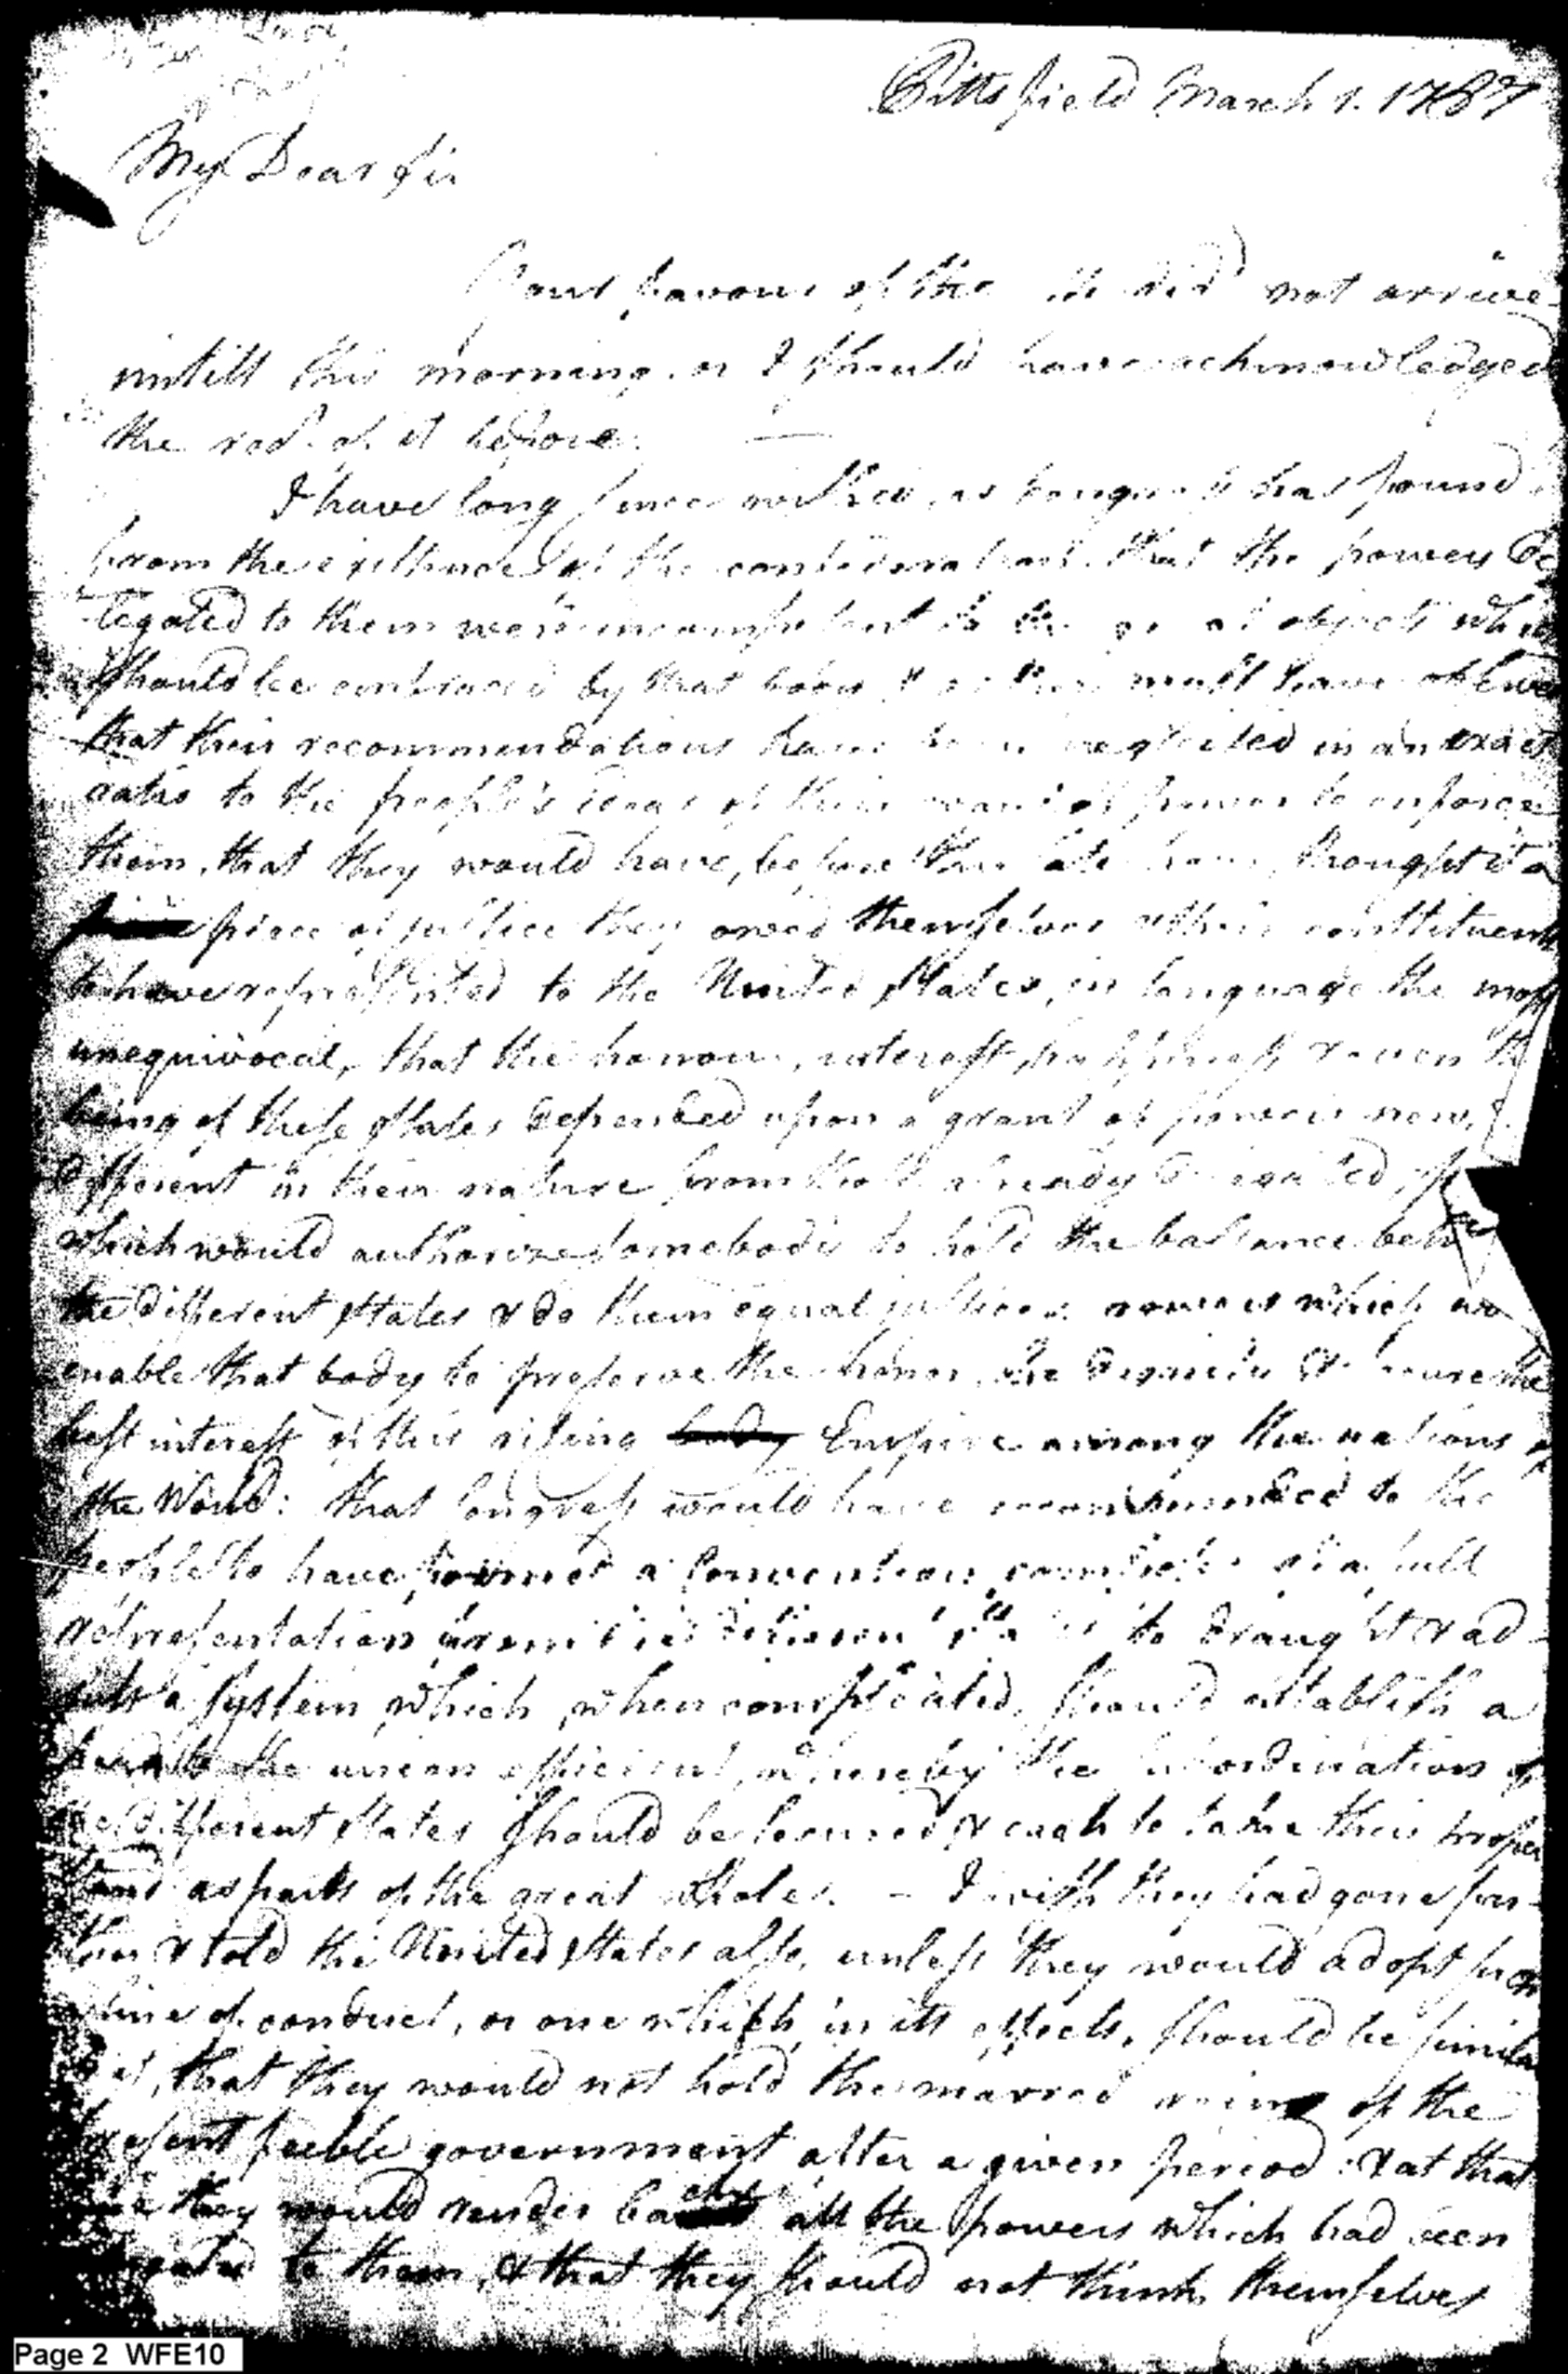 Pittsfield March 1. 1787
My Dear Sir
Your favour of the th did not arrive
untill this morning or I should have acknowledged
the of it before. —
I have long since wished, as Congress has found
from the existence of the confederation that the powers de
legated to them were incompetent to the objects which
should be embraced by that body & must have observed
that their recommendations have been neglected in an exact
ratio to the people's ideas of their want of power to enforce
them, that they would have, before this late hour, thought it a
piece of justice they owed themselves & their constituents
to have represented to the United States, in language the most
unequivocal, that the honour, interest, happiness & even the
being of these States depended upon a grant of powers new, &
different in their nature from those already delegated,
which would authorize somebody to hold the ballance betwe
the different States & do them equal justice: powers which wo
enable that body to preserve the honor, the dignity & secure the
best interest of this rising body Empire among the nations of
the World: that Congress would have recommended to the
people to have formed a Convention, of a full
representation from the different States to draught & ad-
a System which, when compleated, should establish a
the union efficient, whereby the subordination of
the different States should be secured & each to take their proper
as parts of the great whole. — I wish they had gone far-
ther & told the United States also, unless they would adopt such
a line of conduct, or one which in its effects, should be similar
to it, that they would not hold the marred reins of the
present feeble government after a given period: & at that
they would render back all the powers which had been
to them, & that they should not think themselves
Page 2 WFE10